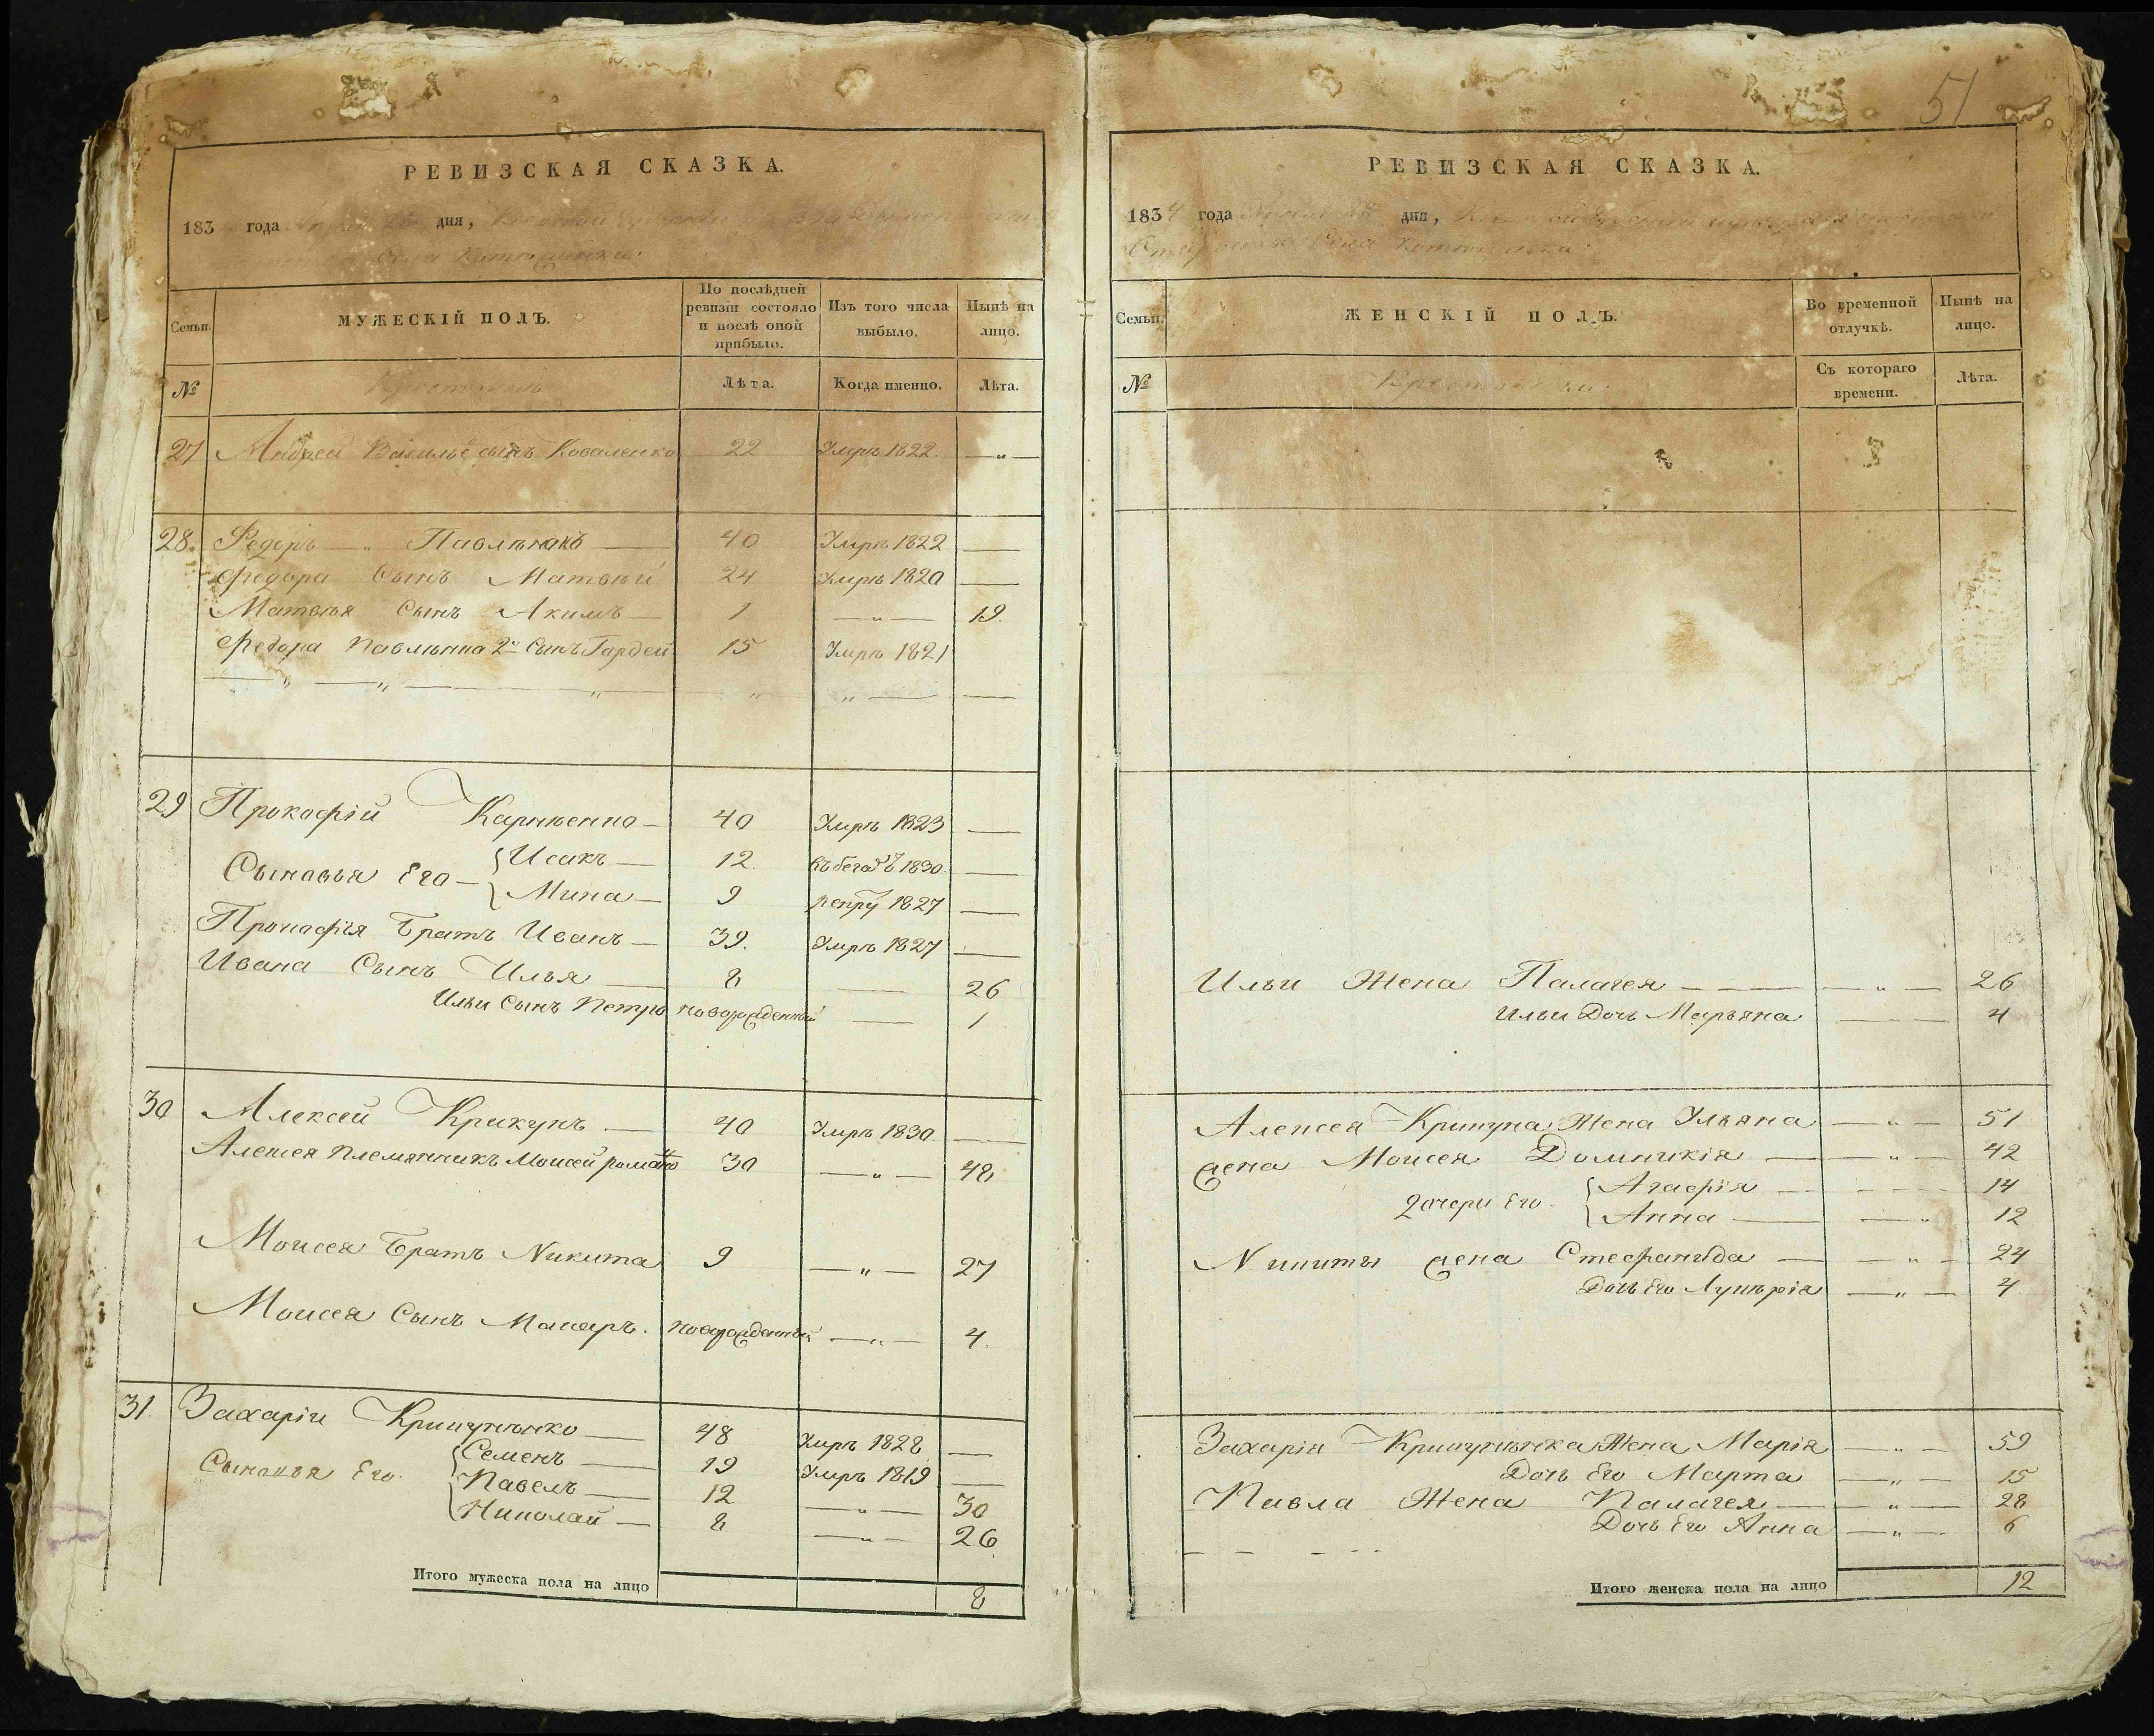 51
РЕВИЗСКАЯ СКАЗКА.
183 года дня,
Села
Семьи.
МУЖЕСКІЙ ПОЛЪ.
По послѣдней ревизіи состояло и послѣ оной прибыло.
Изъ того числа выбыло.
Нынѣ на лицо.
№
Лѣта.
Когда именно.
Лѣта.
27 Андрей Василье сынъ Коваленко 22 Умръ 1822 — „ —
28. Федоръ — „ Павлѣнкъ — 40 Умръ 1822 —
Федора Сынъ Матвѣй 24 Умръ 1820 —
Матвѣя Сынъ Акимъ — 1 — „ — 19.
Федора Павлѣнка 2й Сынъ Гордей 15 Умръ 1821
— „ — „ — „ — „ „ — —
29 Прокофій Карпѣенко — 40 Умръ 1823 —
Сыновья Его — Исакъ — 12. 1830. —
Мина — 9 рекру 1827 —
Прокофія Братъ Иванъ — 39. Умръ 1827 —
Ивана Сынъ Илья — 8 — 26
Ильи Сынъ Петръ новорожденный — 1
30 Алексей Крикунъ — 40 Умръ 1830. —
Алексея Племянникъ Моисей 30 — „ — 48
Моисея Братъ Никита 9 — „ — 27
Моисея Сынъ Макаръ. новорожденный — „ — 4.
31. Захарій Крикунѣнко — 48 Умръ 1828 —
Сыновья Его. Семенъ — 19 Умръ 1819 —
Павелъ — 12 — „ — 30
Николай — 8 — „ — 26
Итого мужеска пола на лицо 8
РЕВИЗСКАЯ СКАЗКА.
1834 года дня,
Села
Семьи.
ЖЕНСКІЙ ПОЛЪ.
Во временной отлучкѣ.
Нынѣ на лицо.
№
Съ котораго времени.
Лѣта.
Ильи Жена Палагея — — — — „ — 26
Ильи Дочь Марьяна — 4
Алексея Крикуна Жена Ульяна — „ — 51
жена Моисея Домникія — — „ — 42
Дочери Его — Агафія — 14
Анна — — „ 12
Никиты жена Стефанида — — „ — 24
Дочь Его Лукѣрія — „ — 4.
Захарія Крикунѣнка Жена Марія — „ — 59
Дочь Его Марта — „ — 15
Павла Жена Палагея — — „ — 28
Дочь Его Анна — „ — 6
Итого женска пола на лицо 12